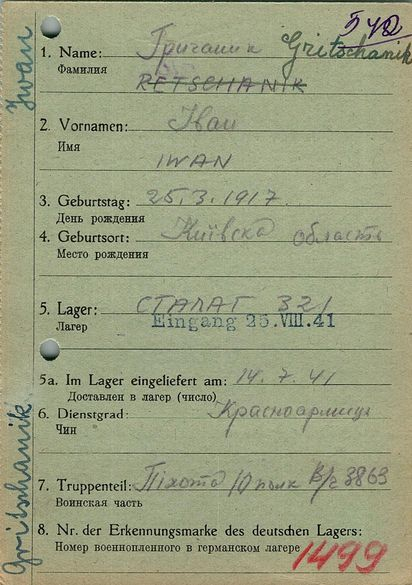 542
Iwan
1. Name: Гричаник Gritschanik
Фамилия
RETSCHANIK
2. Vornamen: Іван
Имя
IWAN
3. Geburtstag: 25.3.1917.
День рождения
4. Geburtsort: Київска область
Место рождения
5. Lager: СТАЛАГ 321
Лагер
Eingang 25. VIII. 41
5a. Im Lager eingeliefert am: 14. 7. 41
Доставлен в лагер (число)
6. Dienstgrad: Красноармиць
Чин
7. Truppenteil: Піхота полк В/г 3863
Воинская часть
8. Nr. der Erkennungsmarke des deutschen Lagers:
Номер военнопленного в германском лагере
1499
Gritschanik